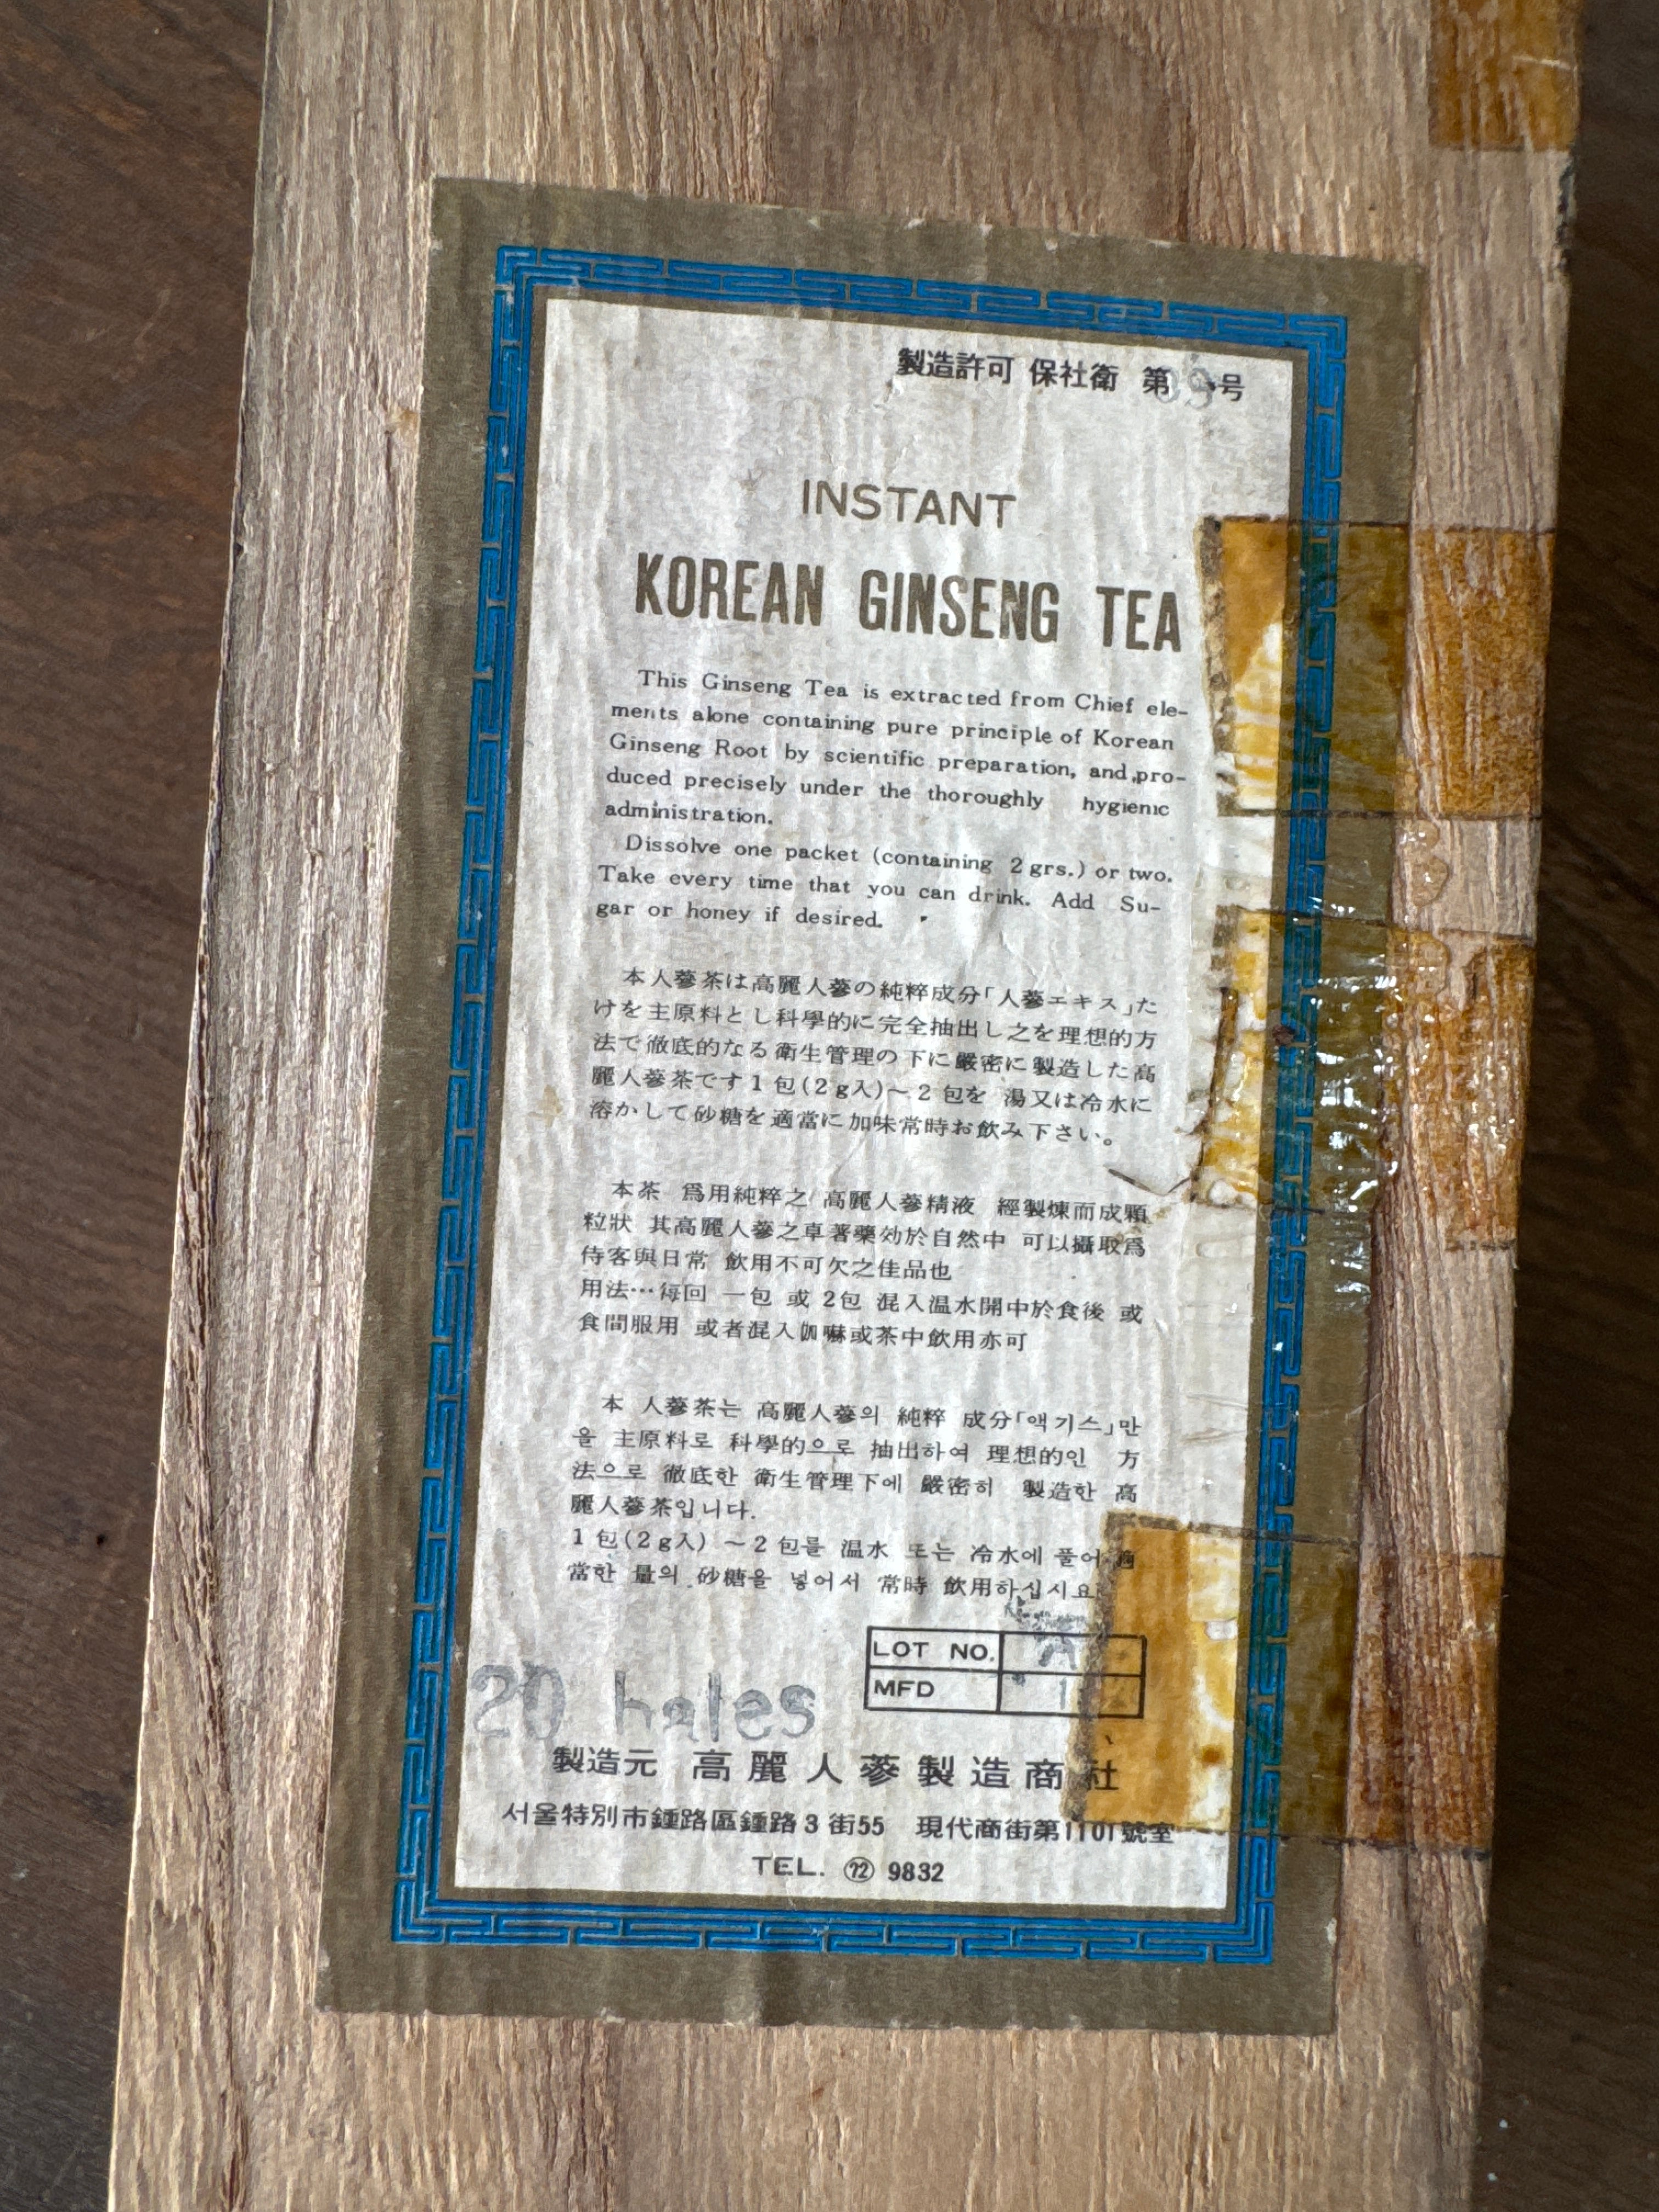 製造許可 保社衛 第 号
INSTANT
KOREAN GINSENG TEA
This Ginseng Tea is extracted from Chief ele-
ments alone containing pure principle of Korean
Ginseng Root by scientific preparation, and pro-
duced precisely under the thoroughly hygienic
administration.
Dissolve one packet (containing 2 grs.) or two.
Take every time that you can drink. Add Su-
gar or honey if desired.
本人蔘茶は高麗人蔘の純粹成分「人蔘エキス」た
けを主原料とし科學的に完全抽出し之を理想的方
法で徹底的なる衛生管理の下に嚴密に製造した高
麗人蔘茶です1包(2g入)〜2包を 湯又は冷水に
溶かして砂糖を適當に加味常時お飲み下さい。
本茶 爲用純粹之 高麗人蔘精液 經製煉而成顆
粒狀 其高麗人蔘之卓著藥効於自然中 可以攝取爲
侍客與日常 飲用不可欠之佳品也
用法…每回 一包 或 2包 混入温水開中於食後 或
食間服用 或者混入伽啉或茶中飲用亦可
本 人蔘茶는 高麗人蔘의 純粹 成分「액기스」만
을 主原料로 科學的으로 抽出하여 理想的인 方
法으로 徹底한 衛生管理下에 嚴密히 製造한 高
麗人蔘茶입니다.
1 包(2g入) ~2包를 温水 또는 冷水에 풀어 適
當한 量의 砂糖을 넣어서 常時 飲用하십시요
LOT NO.
MFD
20 hales
製造元 高麗人蔘製造商社
서울特別市鍾路區鍾路3街55 現代商街第1101號室
TEL. ㉒ 9832